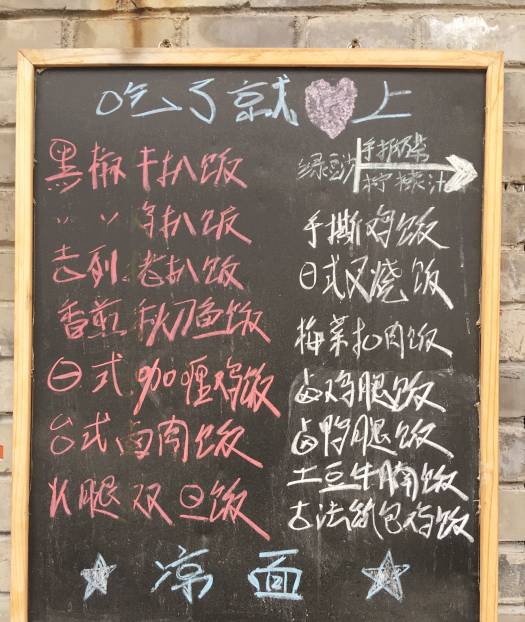 吃了就上
黑椒牛扒饭
〃 〃 扒饭
吉列 扒饭
香煎秋刀鱼饭
日式咖喱鸡饭
台式卤肉饭
火腿双旦饭
绿豆沙
手打奶茶
柠檬汁
手撕鸡饭
日式叉烧饭
梅菜扣肉饭
卤鸡腿饭
卤鸭腿饭
土豆牛腩饭
古法 包鸡饭
凉面